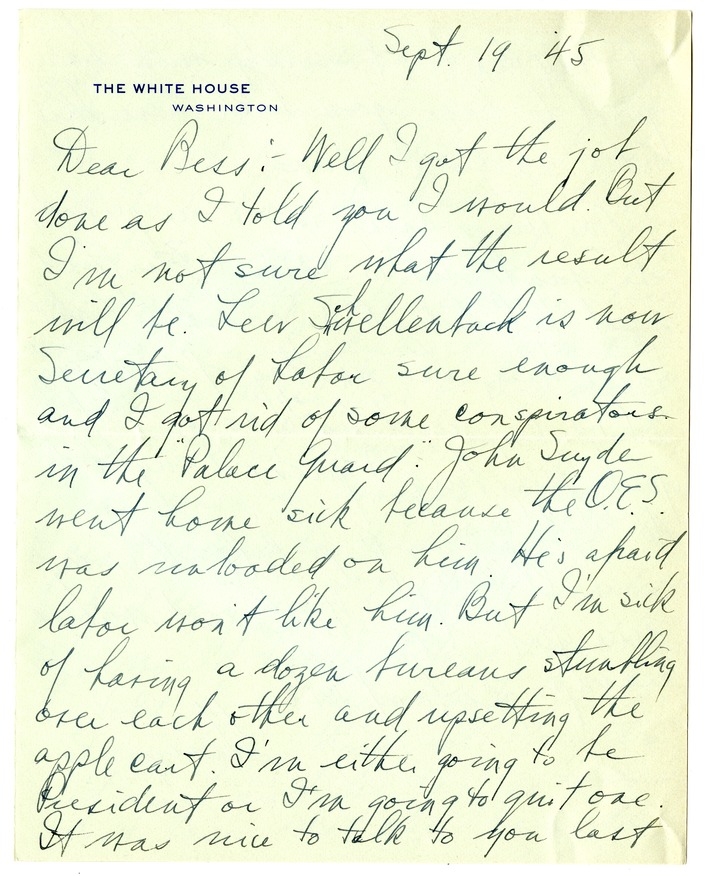 Sept. 19 '45
THE WHITE HOUSE
WASHINGTON
Dear Bess:- Well I got the job
done as I told you I would. But
I'm not sure what the result
will be. Lew Schwellenback is now
Secretary of Labor sure enough
and I got rid of some conspirators
in the "Palace Guard". John Snyder
went home sick because the O.E.S.
was unloaded on him. He's afraid
labor won't like him. But I'm sick
of having a dozen bureaus stumbling
over each other and upsetting the
apple cart. I'm either going to be
President or I'm going to quit one.
It was nice to talk to you last